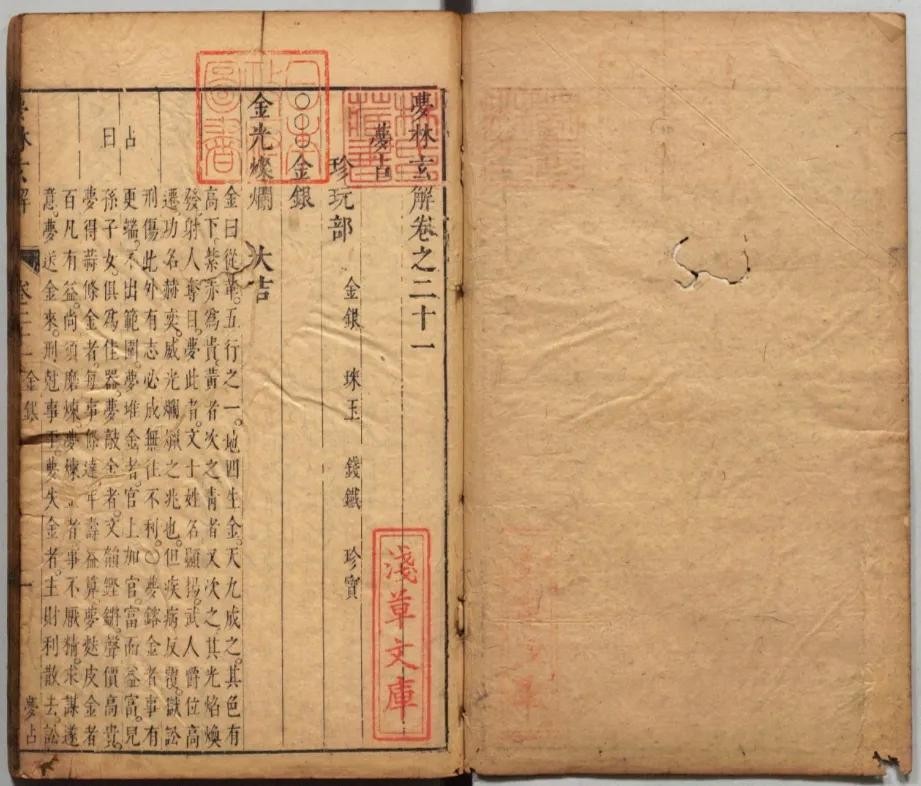 夢林玄解卷之二十一
夢占
珍玩部
金銀 珠玉 錢鐵 珍寶
〇〇〇金銀
金光燦爛 大吉
占曰
金曰從革五行之一。地四生金。天九成之。其色有
高下。紫赤為貴黃者次之青者又次之。其光焰煥
發。射人奪目。夢此者。文士姓名顯揚。武人爵位高
遷。功名赫奕。威光爛爛之兆也。但疾病反覆。獄訟
刑傷此外有志必成無往不利。〇夢鎔金者事有
更端。不出範圍。夢堆金者。官上加官。富而益富。見
孫子女。俱為佳器。夢敲金者。文韻鏗鏘。聲價高貴。
夢得蒜條金者。每事條達。年壽益算。夢麩皮金者
百凡有益。尚須磨煉。夢煉金者事不厭精。求謀遂
意。夢送金來。刑尅事至。夢失金者。主財利散去。訟
夢林玄解 卷二十一 金銀 一 夢占
淺草文庫
林氏藏書
圖書